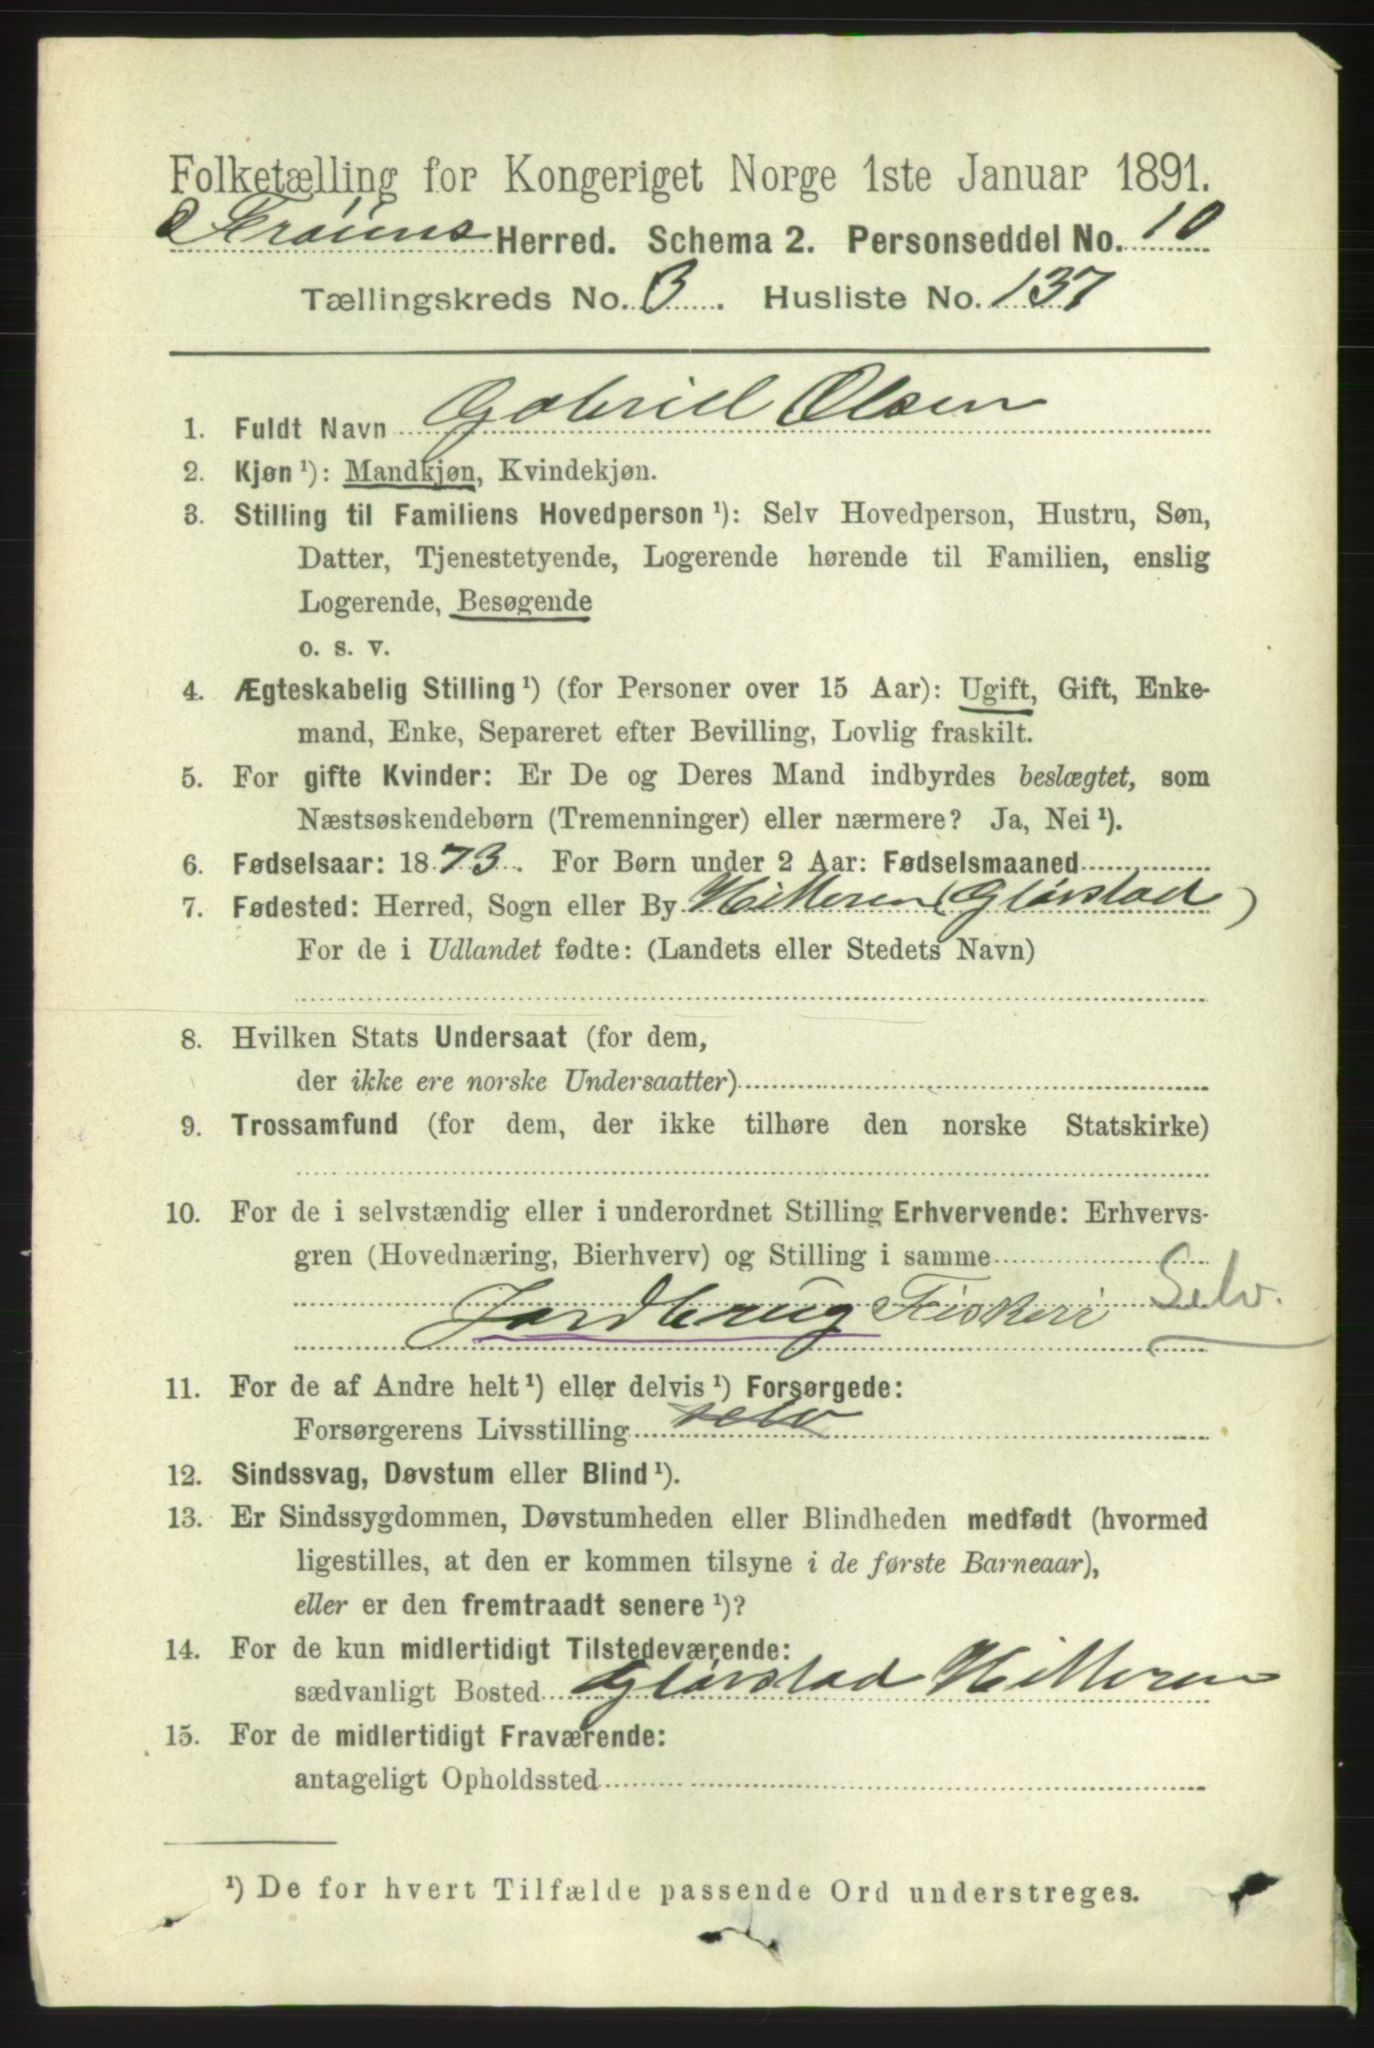 Folketælling for Kongeriget Norge 1ste Januar 1891.
Herred. Schema 2. Personseddel No. 10
Tællingskreds No. 3. Husliste No. 137
1. Fuldt Navn Gabriel Olsen
2. Kjøn ¹): Mandkjøn, Kvindekjøn.
3. Stilling til Familiens Hovedperson ¹): Selv Hovedperson, Hustru, Søn,
Datter, Tjenestetyende, Logerende hørende til Familien, enslig
Logerende, Besøgende
o. s. v.
4. Ægteskabelig Stilling ¹) (for Personer over 15 Aar): Ugift, Gift, Enke-
mand, Enke, Separeret efter Bevilling, Lovlig fraskilt.
5. For gifte Kvinder: Er De og Deres Mand indbyrdes beslægtet, som
Næstsøskendebørn (Tremenninger) eller nærmere? Ja, Nei ¹).
6. Fødselsaar: 1873. For Børn under 2 Aar: Fødselsmaaned
7. Fødested: Herred, Sogn eller By Hitteren (Gløvstad)
For de i Udlandet fødte: (Landets eller Stedets Navn)
8. Hvilken Stats Undersaat (for dem,
der ikke ere norske Undersaatter)
9. Trossamfund (for dem, der ikke tilhøre den norske Statskirke)
10. For de i selvstændig eller i underordnet Stilling Erhvervende: Erhvervs-
gren (Hovednæring, Bierhverv) og Stilling i samme
Jordbrug Fiskeri Selv.
11. For de af Andre helt ¹) eller delvis ¹) Forsørgede:
Forsørgerens Livsstilling selv
12. Sindssvag, Døvstum eller Blind ¹).
13. Er Sindssygdommen, Døvstumheden eller Blindheden medfødt (hvormed
ligestilles, at den er kommen tilsyne i de første Barneaar),
eller er den fremtraadt senere ¹)?
14. For de kun midlertidigt Tilstedeværende:
sædvanligt Bosted Gløvstad Hitteren
15. For de midlertidigt Fraværende:
antageligt Opholdssted
¹) De for hvert Tilfælde passende Ord understreges.